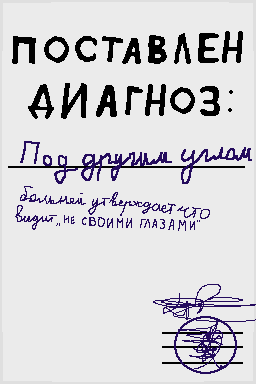 ПОСТАВЛЕН
ДИАГНОЗ:
Под другим углом
больной утверждает что
видит „НЕ СВОИМИ ГЛАЗАМИ"